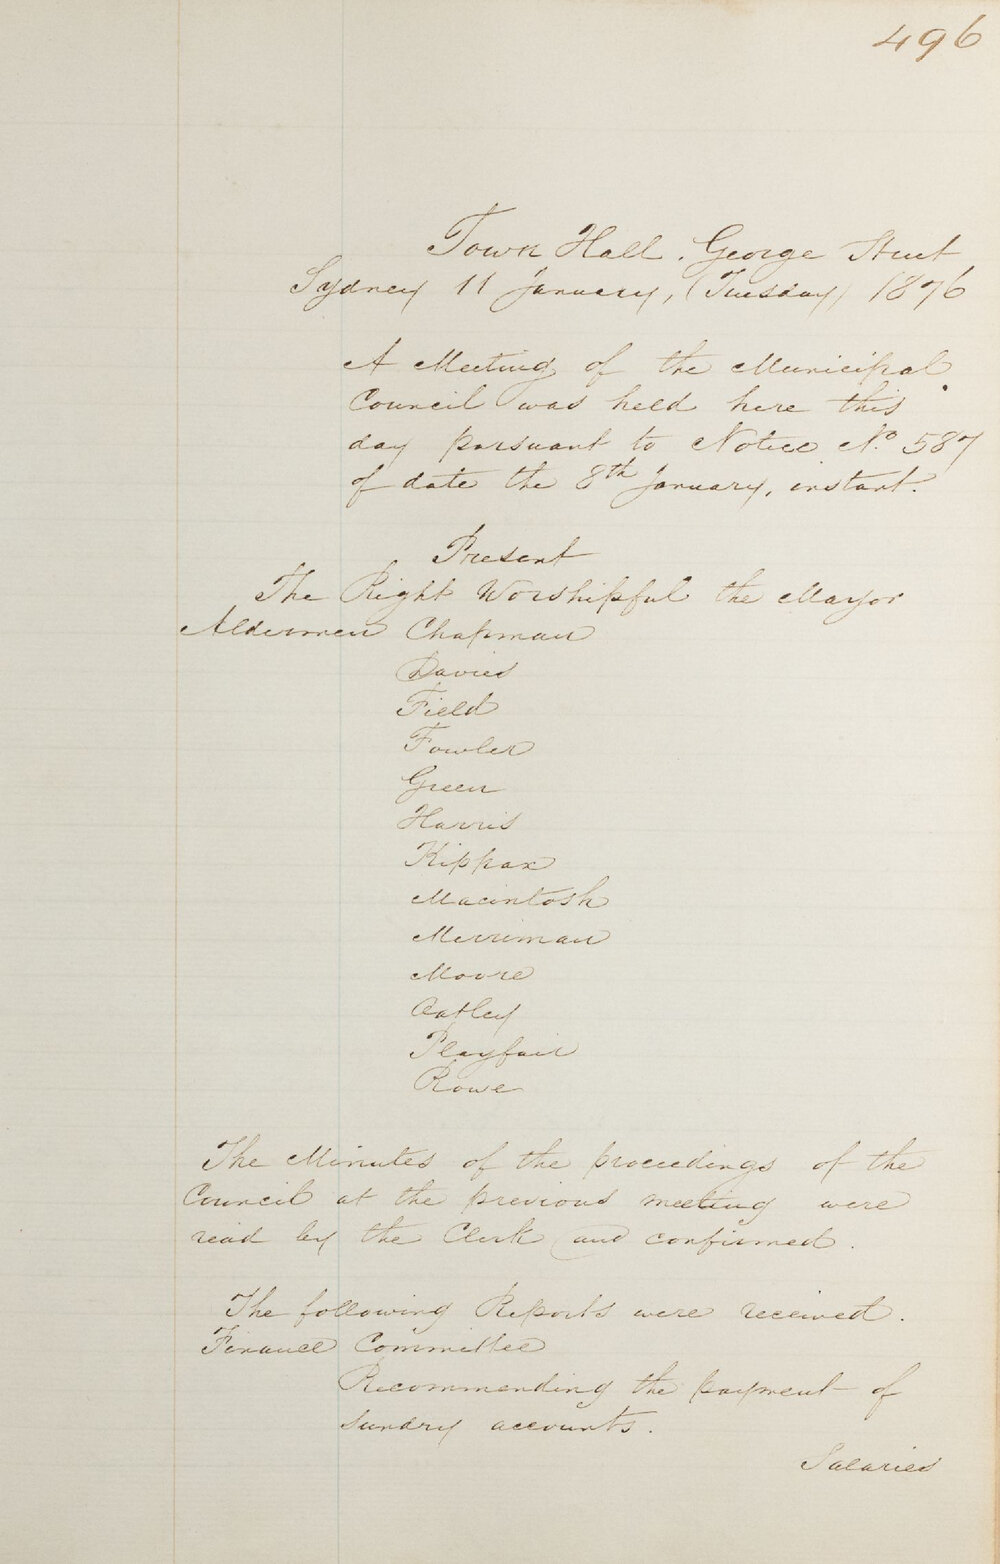 496
Town Hall. George Street
Sydney 11 January, (Tuesday) 1876
A Meeting of the Municipal
Council was held here this
day pursuant to Notice No. 587
of date the 8th January, instant.
Present
The Right Worshipful the Mayor
Aldermen Chapman
Davies
Field
Fowler
Green
Harris
Kippax
Macintosh
Merriman
Moore
Oatley
Playfair
Rowe
The Minutes of the proceedings of the
Council at the previous meeting were
read by the Clerk and confirmed.
The following Reports were received.
Finance Committee
Recommending the payment of
sundry accounts.
Salaries